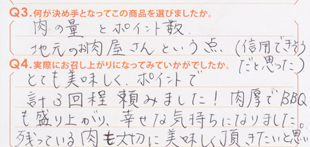 Q3.何が決め手となってこの商品を選びましたか。
肉の量 と ポイント数
地元のお肉屋さんという点 (信用できそう
だと思った)
Q4.実際にお召し上がりになってみていかがでしたか。
とても美味しく、ポイントで
計3回程 頼みました! 肉厚でBBQ
も盛り上がり、幸せな気持ちになりました。
残っている肉も大切に美味しく頂きたいと思い